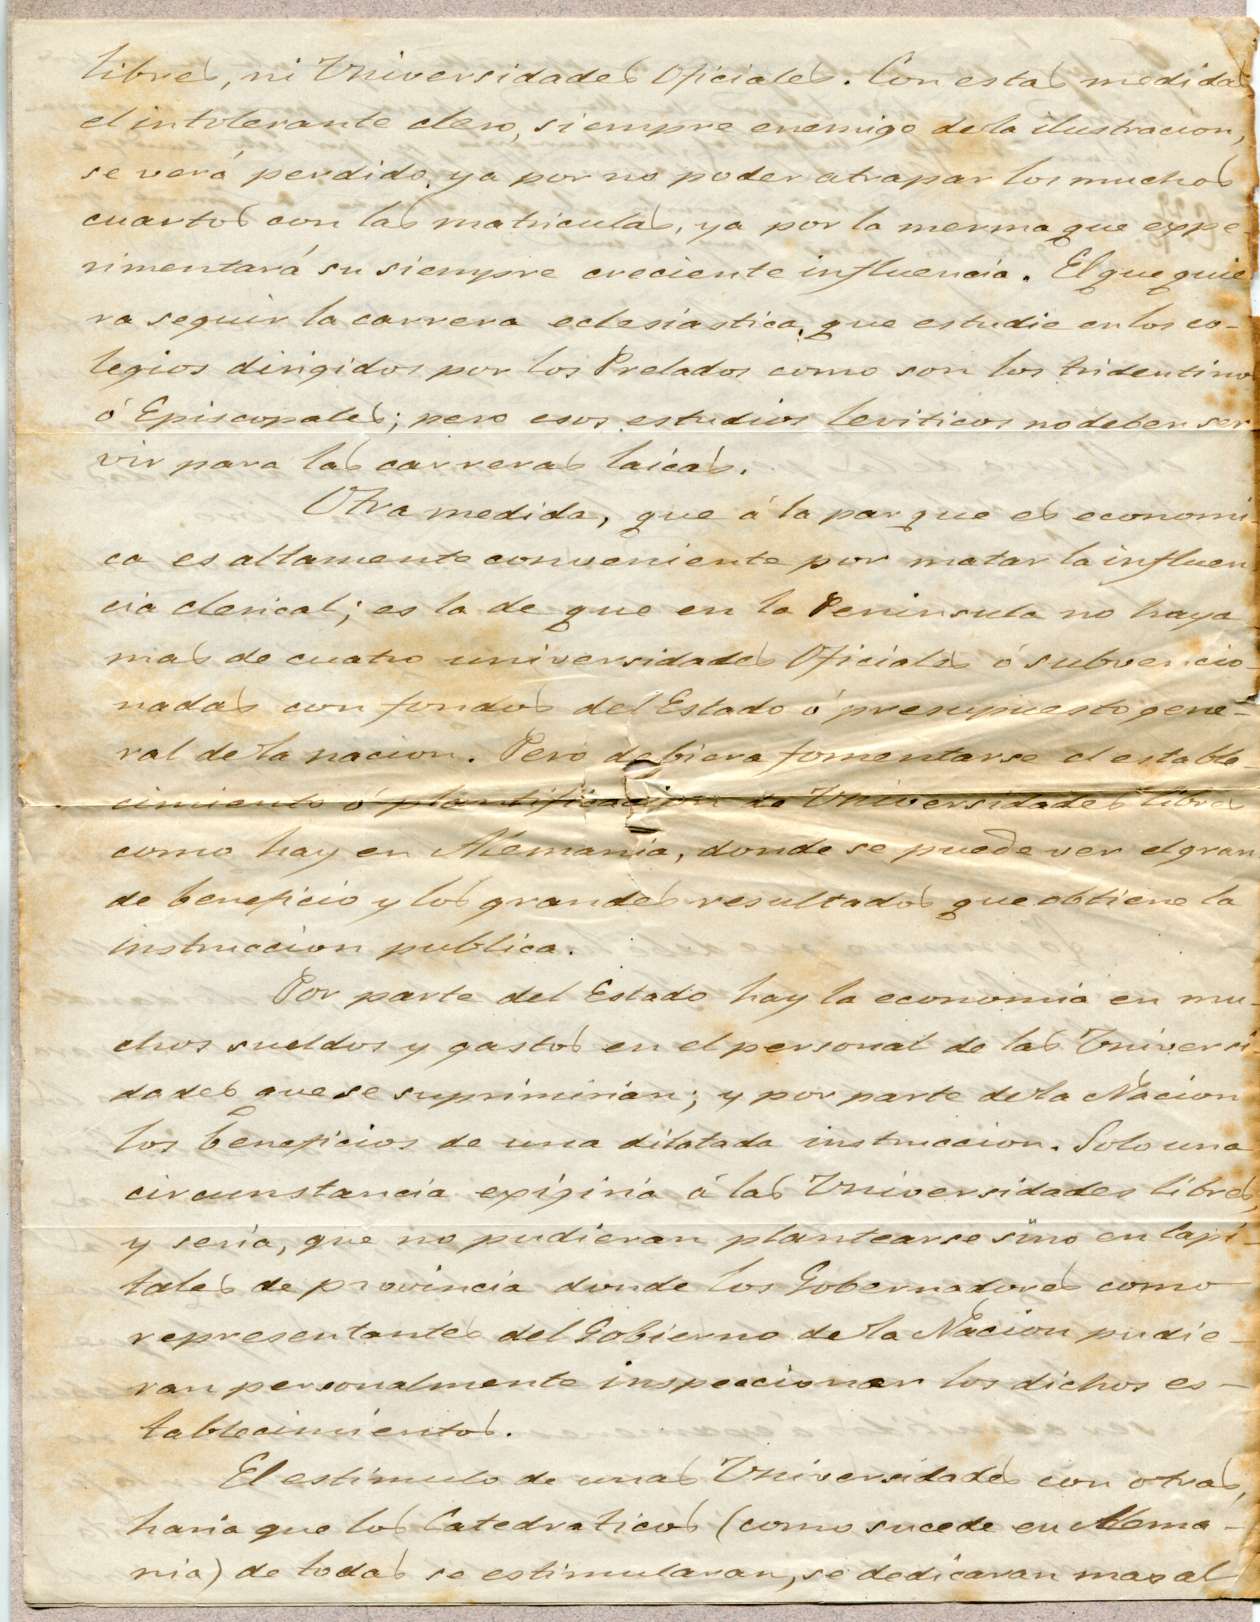 libres, ni Universidades Oficiales. Con estas medidas
el intolerante clero, siempre enemigo de la ilustracion,
se verá perdido, ya por no poder atrapar los muchos
cuartos con las matriculas, ya por la merma que expe-
rimentará su siempre creciente influencia. El que quie
ra seguir la carrera eclesiastica, que estudie en los co-
legios dirigidos por los Prelados como son los tridentinos
ó Episcopales; pero esos estudios leviticos no deben ser
vir para las carreras laicas.
Otra medida, que á la par que es economi
ca es altamente conveniente por matar la influen
cia clerical; es la de que en la Peninsula no haya
mas de cuatro universidades Oficiales ó subvencio-
nadas con fondos del Estado ó presupuesto gene-
ral de la nacion. Pero debiera fomentarse el estable-
cimiento ó plantificacion de Universidades libres
como hay en Alemania, donde se puede ver el gran
de beneficio y los grandes resultados que obtiene la
instruccion publica.
Por parte del Estado hay la economia en mu-
chos sueldos y gastos en el personal de las Universi
dades que se suprimirian; y por parte de la Nacion
los beneficios de una dilatada instruccion. Solo una
circunstancia exigiria á las Universidades libres,
y seria, que no pudieran plantearse sino en Capi-
tales de provincia donde los Gobernadores como
representantes del Gobierno de la Nacion pudie-
ran personalmente inspeccionar los dichos es-
tablecimientos.
El estimulo de unas Universidades con otras,
haria que los Catedraticos (como sucede en Alema-
nia) de todas se estimularan, se dedicaran mas al